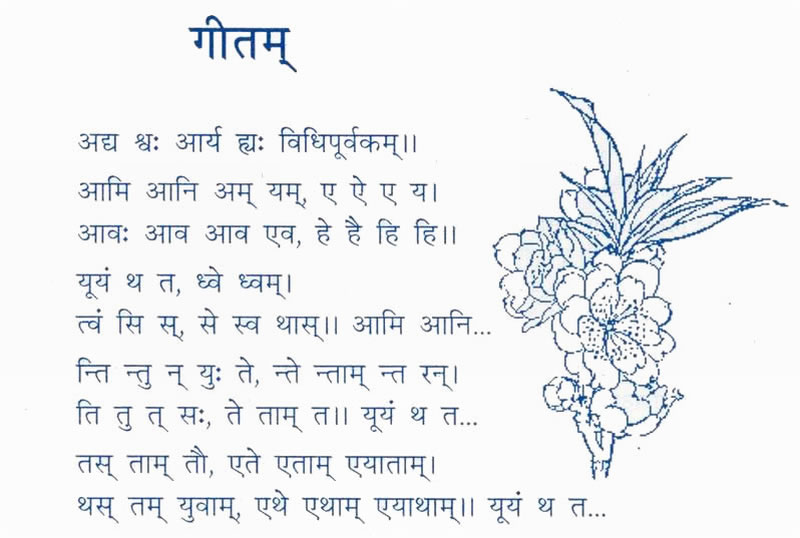 गीतम्
अद्य श्वः आर्य ह्यः विधिपूर्वकम्।।
आमि आनि अम् यम्, ए ऐ ए य।
आवः आव आव एव, हे है हि हि।।
यूयं थ त, ध्वे ध्वम्।
त्वं सि स्, से स्व थास्।। आमि आनि...
न्ति न्तु न् युः ते, न्ते न्ताम् न्त रन्।
ति तु त् सः, ते ताम् त।। यूयं थ त...
तस् ताम् तौ, एते एताम् एयाताम्।
थस् तम् युवाम्, एथे एथाम् एयाथाम्।। यूयं थ त...